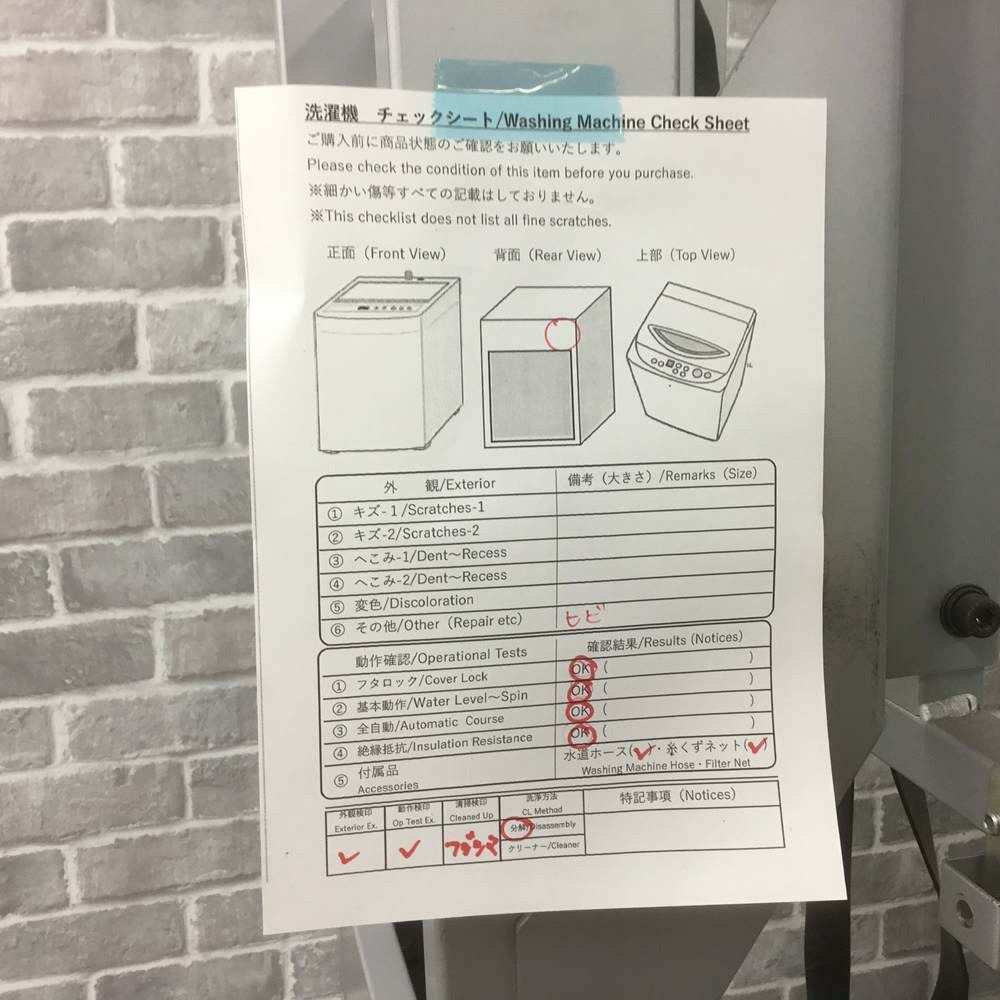 洗濯機　チェックシート/Washing Machine Check Sheet
ご購入前に商品状態のご確認をお願いいたします。
Please check the condition of this item before you purchase.
※細かい傷等すべての記載はしておりません。
※This checklist does not list all fine scratches.
正面（Front View） 背面（Rear View） 上部（Top View）
外　観/Exterior 備考（大きさ）/Remarks（Size）
① キズ-１/Scratches-1
② キズ-2/Scratches-2
③ へこみ-1/Dent～Recess
④ へこみ-2/Dent～Recess
⑤ 変色/Discoloration
⑥ その他/Other（Repair etc) ヒビ
動作確認/Operational Tests 確認結果/Results (Notices)
① フタロック/Cover Lock OK ( )
② 基本動作/Water Level～Spin OK ( )
③ 全自動/Automatic Course OK ( )
④ 絶縁抵抗/Insulation Resistance OK ( )
⑤ 付属品 水道ホース(✓)・糸くずネット(✓)
Accessories Washing Machine Hose・Filter Net
外観検印 動作検印 清掃検印 洗浄方法 特記事項（Notices）
Exterior Ex. Op Test Ex. Cleaned Up CL Method
✓ ✓ フジシマ 分解/Disassembly
クリーナー/Cleaner